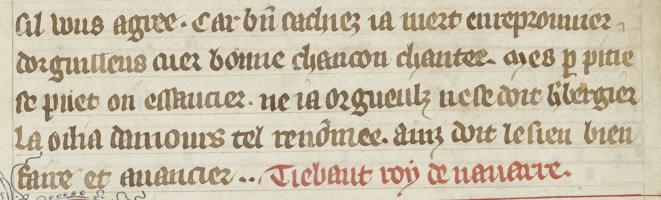 sil wus agree. Car bn̄ sachiez ia niert en reprouuier
dorguilleus cuer bonne chancon chantee. Mes ꝑ pitie
se puet on essaucier. ne ia orgueulz ne se doit h̄bergier
La ou ia damours tel renōmee. ainz doit le sien bien
faire et auancier.. Tiebaut roy de nauarre.